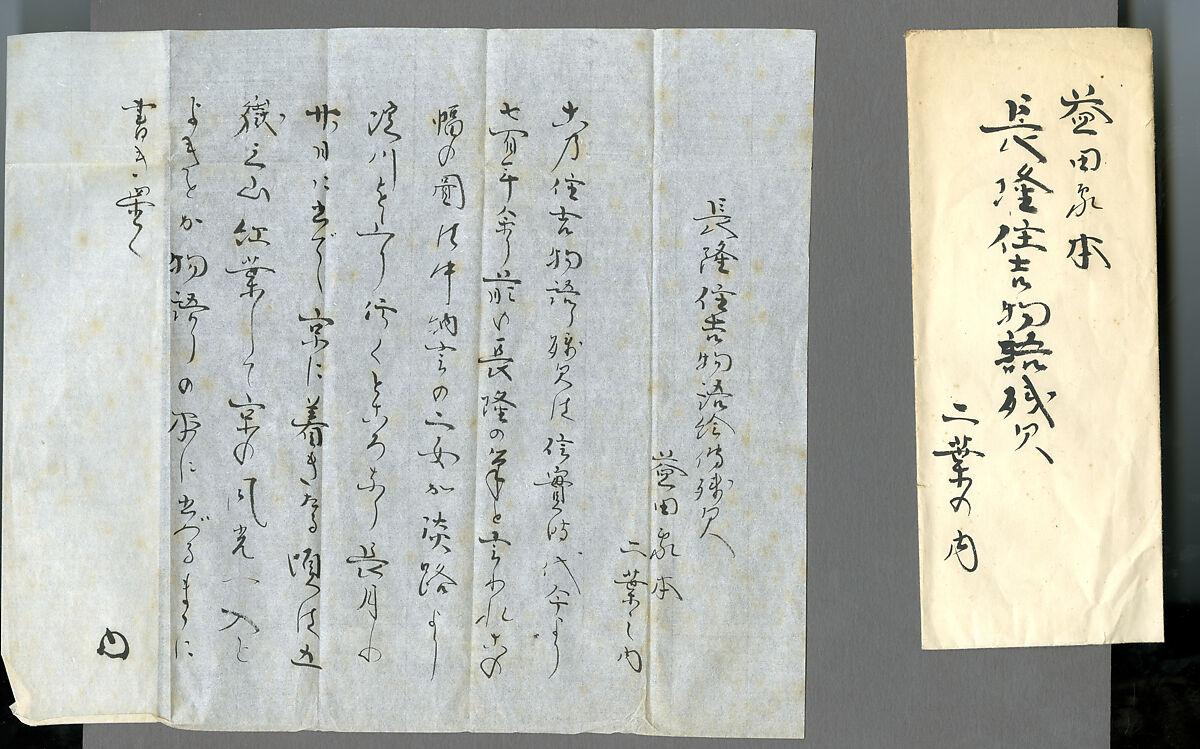 益田家本
長隆住吉物語残欠
二葉の内
長隆住吉物語絵傳残欠
益田家本
二葉之内
古乃住吉物語り残欠は信實時代今より
七百年余り前の長隆の筆と言われこの
幅の圖は中納言の二女か淡路より
淀川を上り行くところなり 長月の
廿日に出でし京に着きたる頃は五
嶽之山紅葉して京の風光一入と
よきとか物語りの中に出づるまゝに
書き置く